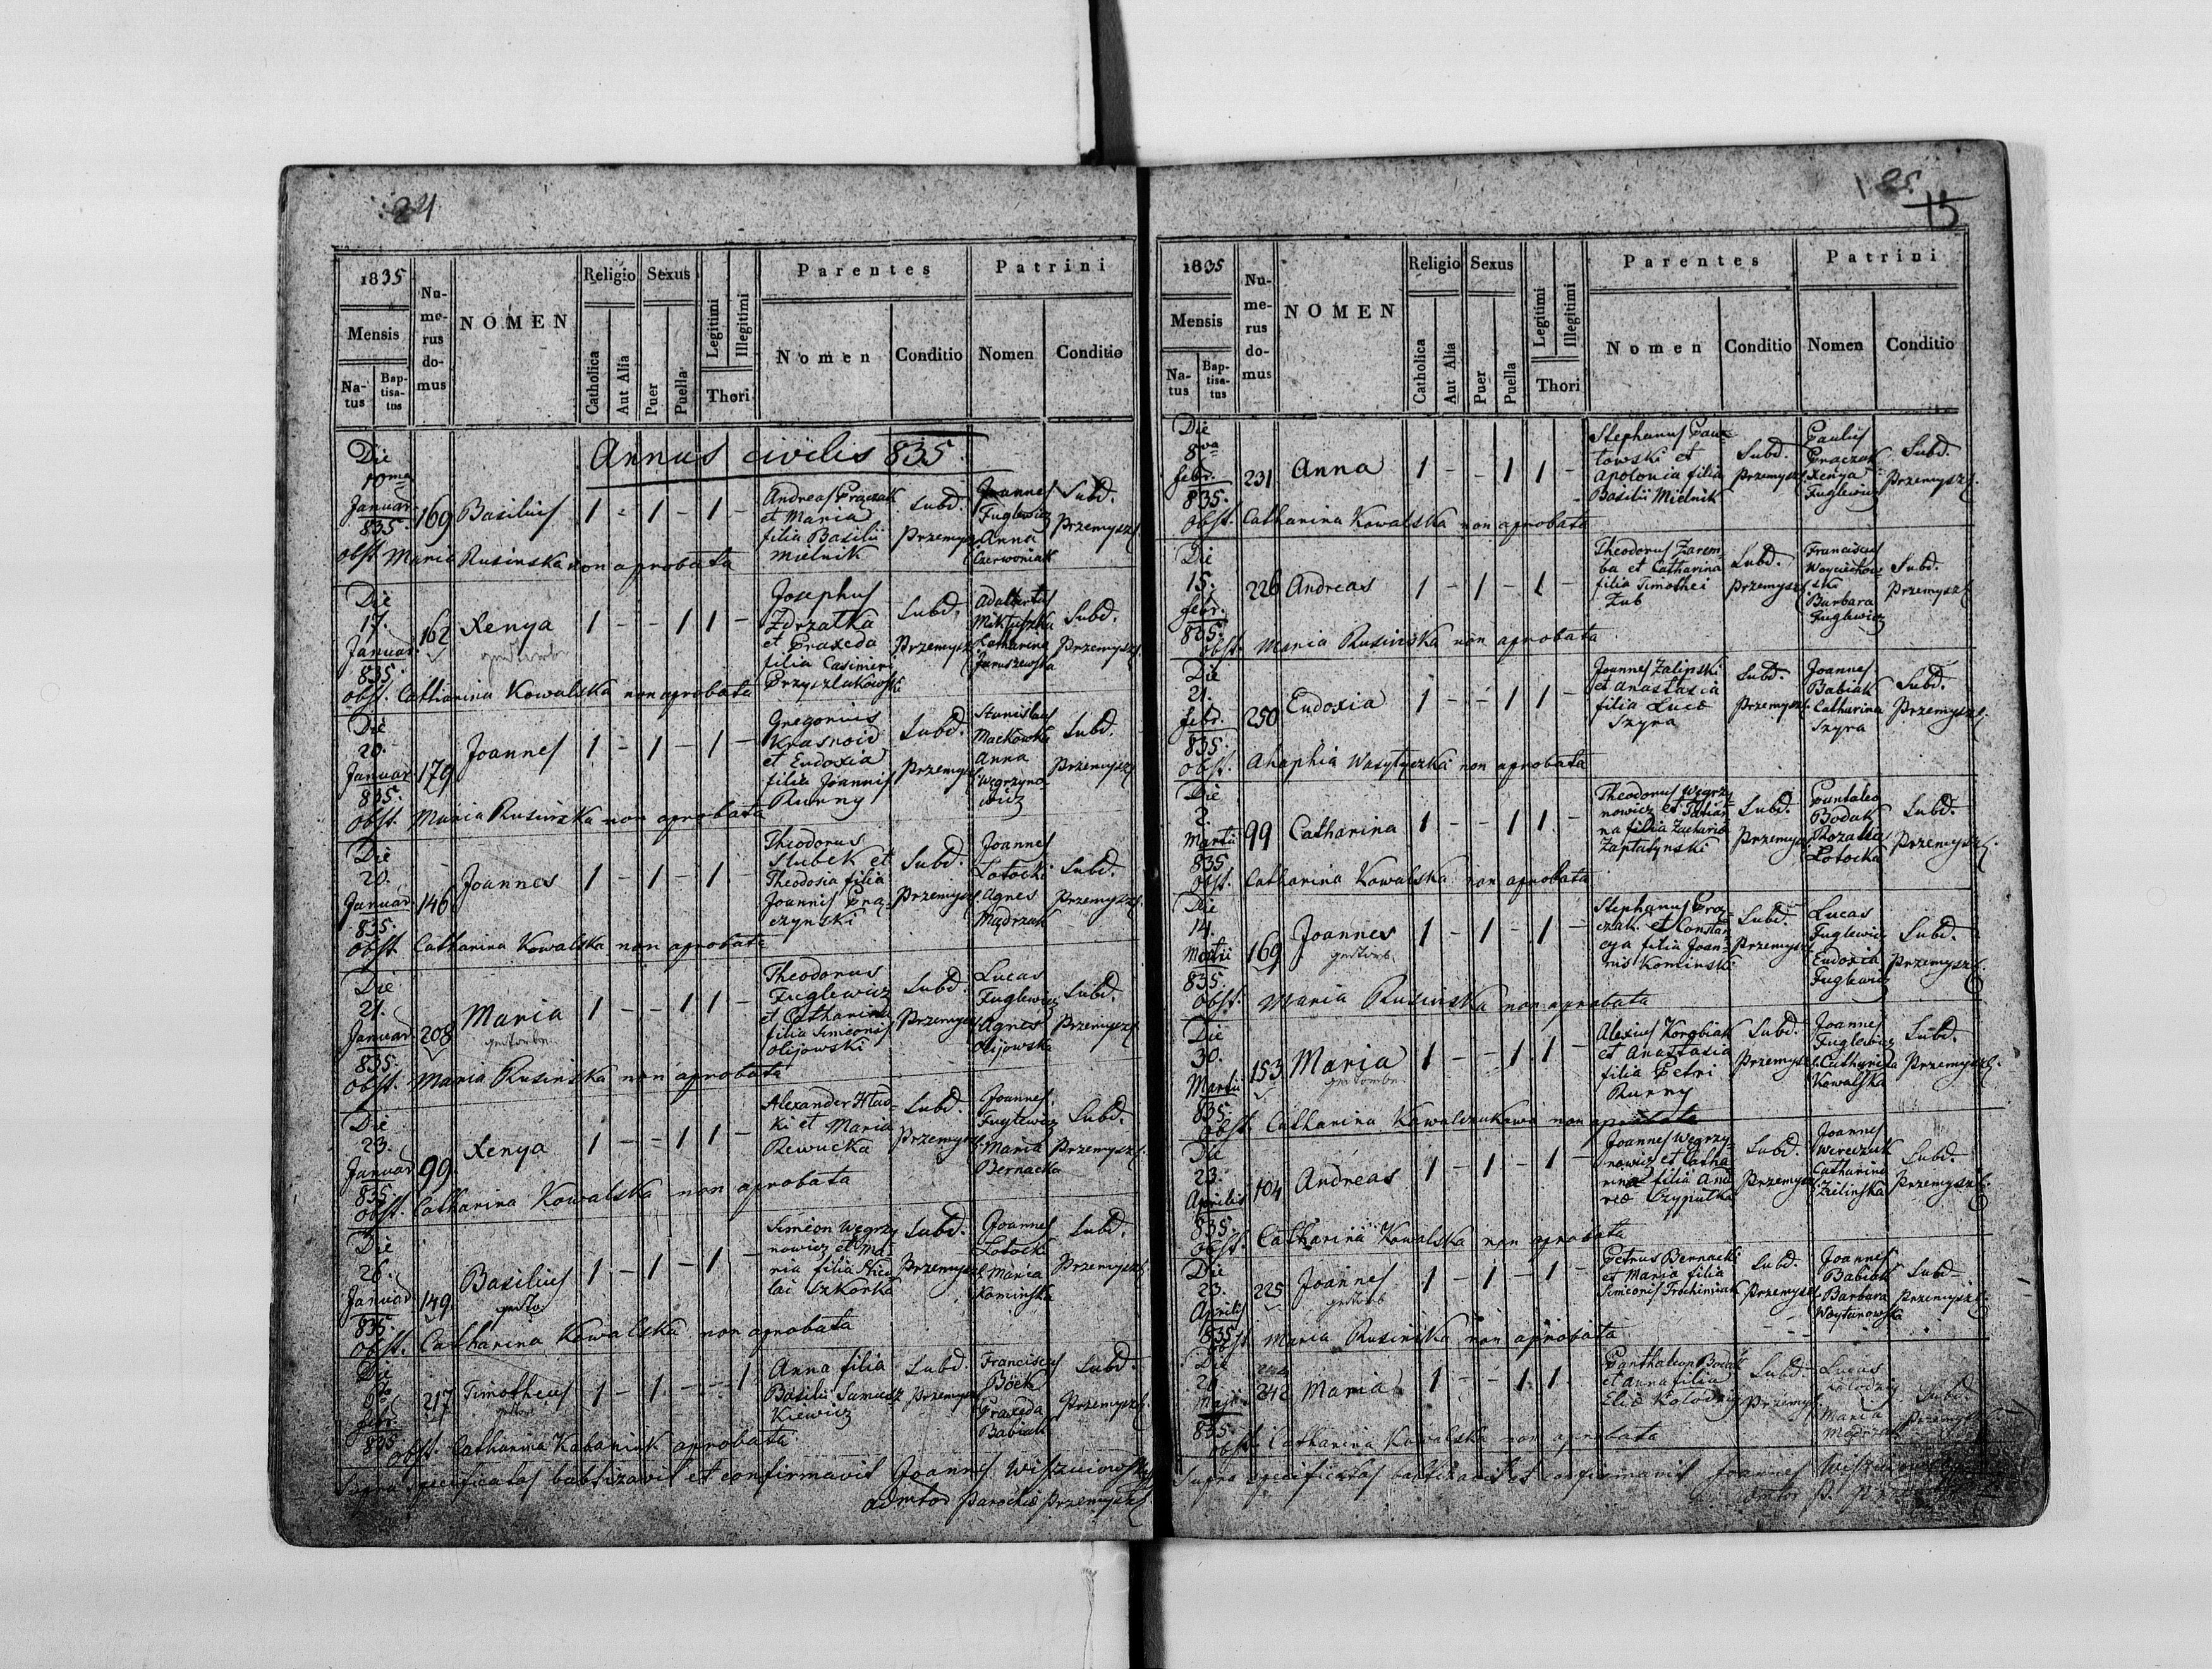 24
1835
Mensis
Na-
tus
Bap-
tisa-
tus
Nu-
me-
rus
do-
mus
NOMEN
Religio
Catholica
Aut Alia
Sexus
Puer
Puella
Legitimi
Illegitimi
Thori
Parentes
Nomen
Conditio
Patrini
Nomen
Conditio
Annus civilis 835.
Die
10ma
Januar
835.
169
Basilius
1 - 1 - 1 -
Andreas Praczak
et Maria
filia Basilii
Mielnik
Subd.
Przemysl
Joannes
Fuglewicz
Anna
Czerwoniak
Subd.
Przemysl.
obst. Maria Rusinska non aprobata
Die
17.
Januar.
835.
162
Xenya
1 - - 1 1 -
Josephus
Zdrzatka
et Praxeda
filia Casimiri
Przyszlakowski
Subd.
Przemysl
Adalbertus
Mikluszka
Catharina
Januszewska
Subd.
Przemysl.
obst. Catharina Kowalska non aprobata
Die
20.
Januar
835.
179
Joannes
1 - 1 - 1 -
Gregorius
Krasnoid
et Eudoxia
filia Joannis
Runny
Subd.
Przemysl
Stanislaus
Mackowka
Anna
Węgrzyno-
wicz
Subd.
Przemysl
obst. Maria Rusinska non aprobata
Die
20.
Januar
835.
146
Joannes
1 - 1 - 1 -
Theodorus
Slubek et
Theodosia filia
Joannis Pra-
czynski
Subd.
Przemysl.
Joannes
Lotocki
Agnes
Mądrzak
Subd.
Przemysl.
obst. Catharina Kowalska non aprobata
Die
21.
Januar
835.
208
Maria
1 - - 1 1 -
Theodorus
Fuglewicz
et Catharina
filia Simeonis
Olijowski
Subd.
Przemysl
Lucas
Fuglewicz
Agnes
Olijowska
Subd.
Przemysl
obst. Maria Rusinska non aprobata
Die
23.
Januar
835.
99.
Xenya
1 - - 1 1 -
Alexander Hlad-
ki et Maria
Rewucka
Subd.
Przemysl.
Joannes
Fuglewicz
Maria
Bernacka
Subd.
Przemysl.
obst. Catharina Kowalska non aprobata
Die
26.
Januar
835.
149.
Basilius
1 - 1 - 1 -
Simeon Węgrzy
nowicz et Ma-
ria filia Nico
lai Szkorka
Subd.
Przemysl.
Joannes
Lotocki
Maria
Kominska
Subd.
Przemysl.
obst. Catharina Kowalska non aprobata
Die
6ta
febr.
835
217
Timotheus
1 - 1 - - 1
Anna filia
Basilii Samusz
Kiewicz
Subd.
Przemysl
Franciscus
Böck
Praxeda
Babiak
Subd.
Przemysl.
obst. Catharina Kabaniuk aprobata
Supra specificatos babtizavit et confirmavit Joannes Wiszniowski
admtor Parochiæ Przemysl.
25.
15
1835
Mensis
Na-
tus
Bap-
tisa-
tus
Nu-
me-
rus
do-
mus
NOMEN
Religio
Catholica
Aut Alia
Sexus
Puer
Puella
Legitimi
Illegitimi
Thori
Parentes
Nomen
Conditio
Patrini
Nomen
Conditio
Die
8va
febr.
835.
231
Anna
1 - - 1 1 -
Stephanus Paw-
towski et
Apolonia filia
Basilii Mielnik
Subd.
Przemysl.
Paulus
Praczak
Xenya
Fuglewicz
Subd.
Przemysl.
obst. Catharina Kowalska non aprobata
Die
15.
febr.
835.
226
Andreas
1 - 1 - 1 -
Theodorus Zarem-
ba et Catharina
filia Timothei
Zub
Subd.
Przemysl.
Franciscus
Woyciechow-
ski
Barbara
Fuglewicz
Subd.
Przemysl.
obst. Maria Rusinska non aprobata
Die
21.
febr.
835.
250
Eudoxia
1 - - 1 1 -
Joannes Zalipski
et Anastasia
filia Lucæ
Szyra
Subd.
Przemysl.
Joannes
Babiak
Catharina
Szyra
Subd.
Przemysl.
obst. Ahaphia Wasytyczka non aprobata
Die
2.
Martii
835
99
Catharina
1 - - 1 1 -
Theodorus Węgrzy-
nowicz et Tatian-
na filia Zachariæ
Zaplatynski
Subd.
Przemysl.
Pantaleo
Bodak
Rozalia
Lotocka
Subd.
Przemysl.
obst. Catharina Kowalska non aprobata
Die
14.
Martii
835.
169
Joannes
1 - 1 - 1 -
Stephanus Pra-
czak et Constan-
cya filia Joan-
nis Kominski
Subd.
Przemysl.
Lucas
Fuglewicz
Eudoxia
Fuglewicz
Subd.
Przemysl.
obst. Maria Rusinska non aprobata
Die
30.
Martii
835.
153
Maria
1 - - 1 1 -
Alexius Korobiak
et Anastasia
filia Petri
Runny
Subd.
Przemysl.
Joannes
Fuglewicz
Catharina
Kowalska
Subd.
Przemysl.
obst. Catharina Kowalczukowa non aprobata
Die
23.
Aprilis
835.
104
Andreas
1 - 1 - 1 -
Joannes Węgrzy-
nowicz et Catha-
rina filia And
reæ Szypulka
Subd.
Przemysl.
Joannes
Wereczuk
Catharina
Zielinska
Subd.
Przemysl.
obst. Catharina Kowalska non aprobata
Die
23.
Aprilis
835.
225
Joannes
1 - 1 - 1 -
Petrus Bernacki
et Maria filia
Simeonis Trochimiak
Subd.
Przemysl
Joannes
Babiak
Barbara
Woytanowska
Subd.
Przemysl.
obst. Maria Rusinska non aprobata
Die
20.
Maji
835.
242
Maria
1 - - 1 1
Panthaleon Bodak
et Anna filia
Eliæ Kolodziy
Subd.
Przemysl.
Lucas
Kolodziy
Maria
Mądrzak
Subd.
Przemysl.
obst. Catharina Kowalska non aprobata
Supra specificatos babtizavit et confirmavit Joannes Wiszniowski
admtor P.